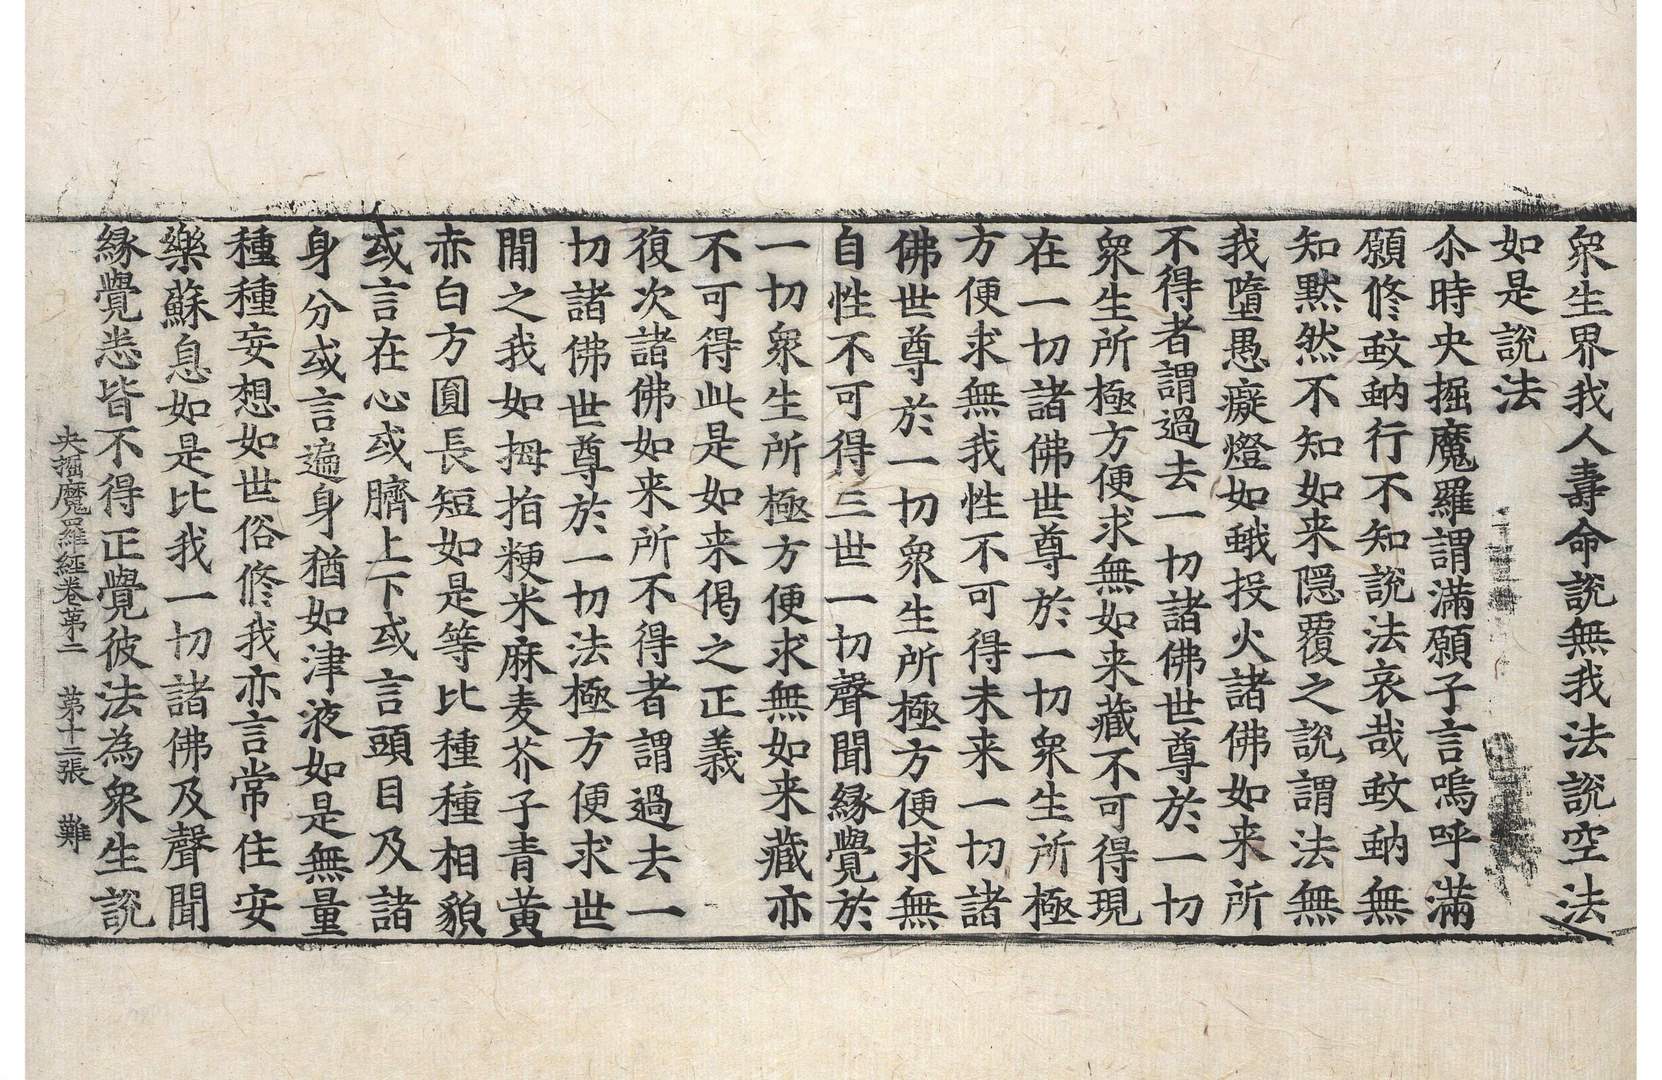 衆生界我人壽命說無我法說空法
如是說法
尒時央掘魔羅謂滿願子言嗚呼滿
願修蚊蚋行不知說法哀哉蚊蚋無
知黙然不知如来隠覆之說謂法無
我墮愚癡燈如蛾投火諸佛如来所
不得者謂過去一切諸佛世尊於一切
衆生所極方便求無如来藏不可得現
在一切諸佛世尊於一切衆生所極
方便求無我性不可得未来一切諸
佛世尊於一切衆生所極方便求無
自性不可得三世一切聲聞緣覺於
一切衆生所極方便求無如来藏亦
不可得此是如来偈之正義
復次諸佛如来所不得者謂過去一
切諸佛世尊於一切法極方便求世
間之我如拇指粳米麻麦芥子青黄
赤白方圓長短如是等比種種相貌
或言在心或臍上下或言頭目及諸
身分或言遍身猶如津液如是無量
種種妄想如世俗修我亦言常住安
樂蘇息如是比我一切諸佛及聲聞
緣覺悉皆不得正覺彼法為衆生說
央掘魔羅經卷苐二　苐十二張　難